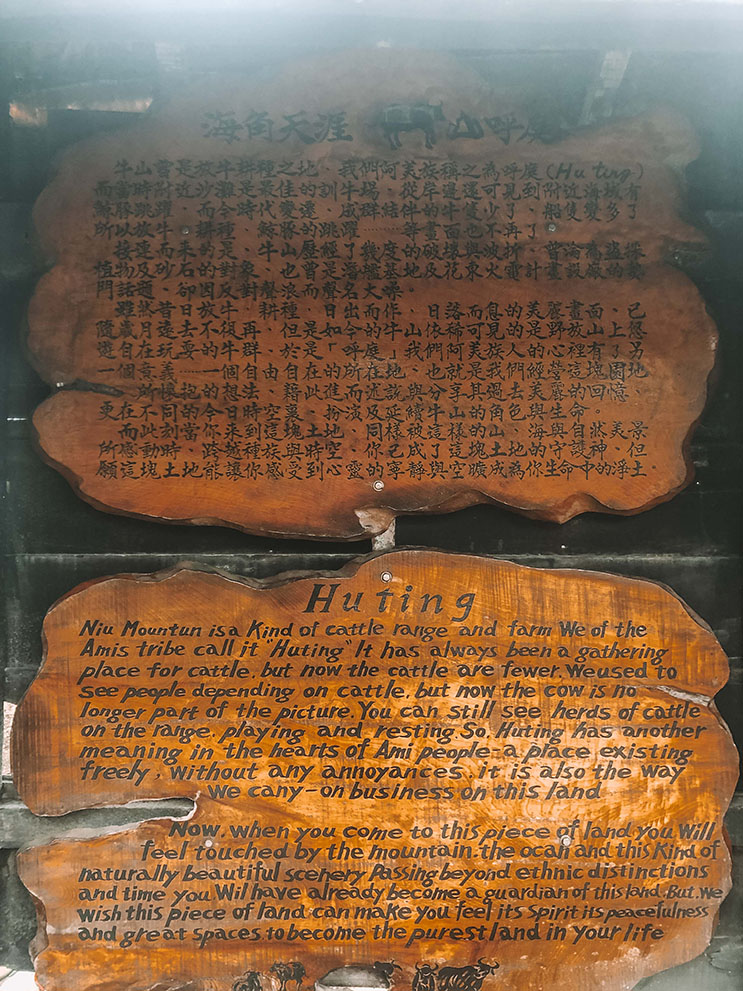 海角天涯 山呼庭
牛山曾是放牛耕種之地、我們阿美族稱之為呼庭(Huting)
而當時附近沙灘是最佳的訓牛場、從岸邊還可見到附近海域有
鯨豚跳躍、而今時代變遷、成群結伴的牛隻少了、船隻變多了
所以放牛、耕種、鯨豚的跳躍……等畫面也不再了
接踵而來的是、牛山歷經了幾度的破壞與波折、曾淪為盜採
植物及砂石的對象、也曾是濫墾墓地及花東火電計畫設廠的
門話題、卻因反對聲浪而聲名大噪。
雖然昔日放牛、耕種、日出而作、日落而息的美麗畫面、已
隨歲月遠去不復再、但是如今的牛山依稀可見的是野放山上悠
遊自在玩耍的牛群、於是「呼庭」我們阿美族人的心裡有了另
一個意義……一個自由自在的所在地、也就是我們經營這塊園地
所懷抱的想法、藉此進而述說與分享其過去美麗的回憶、
更在不同的今日時空裏、扮演及延續牛山的角色與生命。
而此刻當你來到這塊土地、同樣被這樣的山、海與自然美景
所感動時、跨越種族與時空、你已成了這塊土地的守護神、但
願這塊土地能讓你感受到心靈的寧靜與空曠成為你生命中的淨土.
Huting
Niu Mountun is a Kind of cattle range and farm We of the
Amis tribe call it "Huting" It has always been a gathering
place for cattle, but now the cattle are fewer. We used to
see people depending on cattle, but now the cow is no
longer part of the picture. You can still see herds of cattle
on the range, playing and resting So, Huting has another
meaning in the hearts of Ami people-a place existing
freely, without any annoyances, it is also the way
we cany-on business on this land
Now, when you come to this piece of land, you Will
feel touched by the mountain, the ocan and this Kind of
naturally beautiful scenery Passing beyond ethnic distinctions
and time you Wil have already become a guardian of this land. But. we
wish this piece of land can make you feel its Spirit its peacefulness
and great spaces to become the purest land in your life